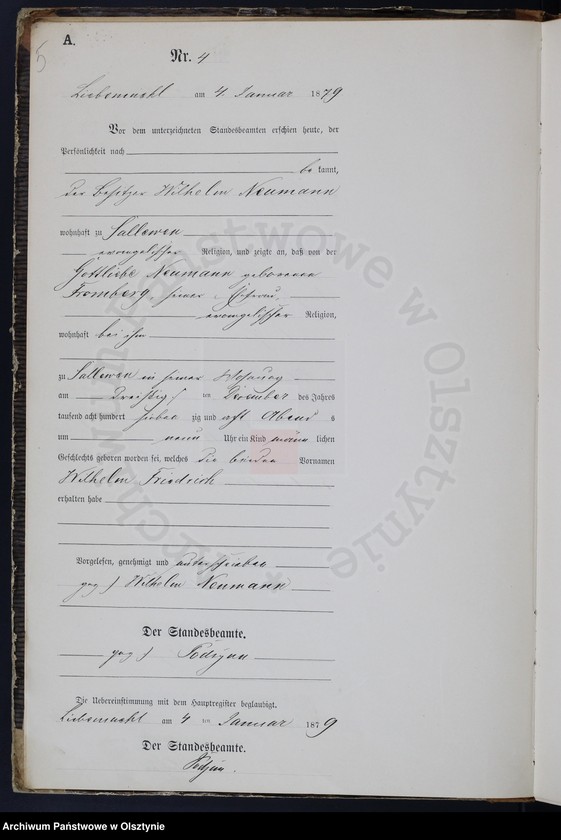 5
A.
Nr. 4
Liebemühl am 4 Januar 1879
Vor dem unterzeichneten Standesbeamten erschien heute, der
Persönlichkeit nach
be kannt,
der Besitzer Wilhelm Neumann
wohnhaft zu Sallewen
evangelischer Religion, und zeigte an, daß von der
Gottliebe Neumann geborenen
Fromberg, seiner Ehefrau,
evangelischer Religion,
wohnhaft bei ihm
zu Sallewen in seiner Wohnung
am Dreißig ten Dezember des Jahres
tausend acht hundert sieben zig und acht Abend s
um neun Uhr ein Kind männ lichen
Geschlechts geboren worden sei, welches die beiden Vornamen
Wilhelm Friedrich
erhalten habe
Vorgelesen, genehmigt und unterschrieben
gez) Wilhelm Neumann
Der Standesbeamte.
gez)
Die Uebereinstimmung mit dem Hauptregister beglaubigt.
Liebemühl am 4 ten Januar 1879
Der Standesbeamte.
Archiwum Państwowe w Olsztynie
Archiwum Państwowe w Olsztynie